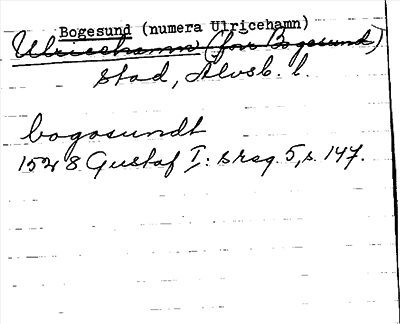 Bogesund (numera Ulricehamn)
Ulricehamn (förr Bogesund)
Stad, Älvsb. l.
bogosundt
1528 Gustaf I: s reg. 5, s. 147.